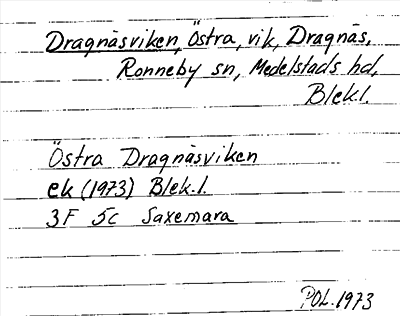 Dragnäsviken, Östra, vik, Dragnäs,
Ronneby sn, Medelstads hd,
Blek.l.
Östra Dragnäsviken
ek (1973) Blek.l.
3F 5c Saxemara
POL. 1973